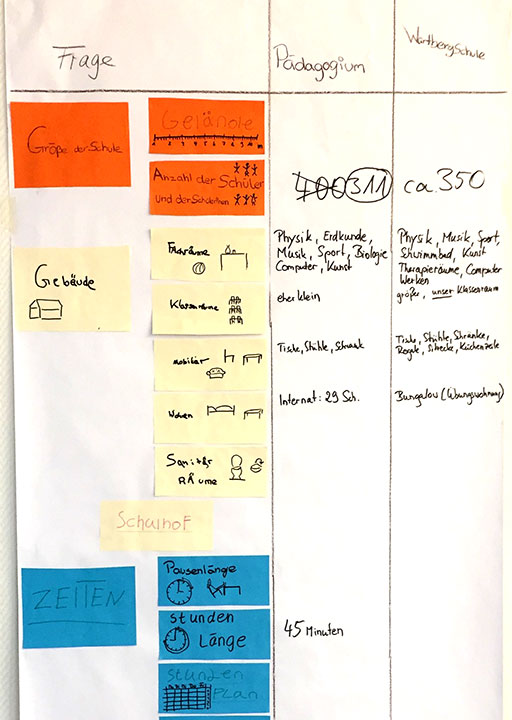 Frage
Pädagogium
Wartbergschule
Größe der Schule
Gelände
Anzahl der Schüler
und der Schülerinnen
400 311
ca. 350
Gebäude
Fachräume
Physik, Erdkunde,
Musik, Sport, Biologie
Computer, Kunst
Physik, Musik, Sport,
Schwimmbad, Kunst
Therapieräume, Computer
Werken
Klassenräume
eher klein
größer, unser Klassenraum
Mobiliar
Tische, Stühle, Schrank
Tische, Stühle, Schränke,
Regale, Sitzecke, Küchenzeile
Wohnen
Internat: 29 Sch.
Bungalow (Übungswohnung)
Sanitär
RÄume
Schulhof
ZEITEN
Pausenlänge
Stunden
Länge
45 Minuten
Stunden
Plan